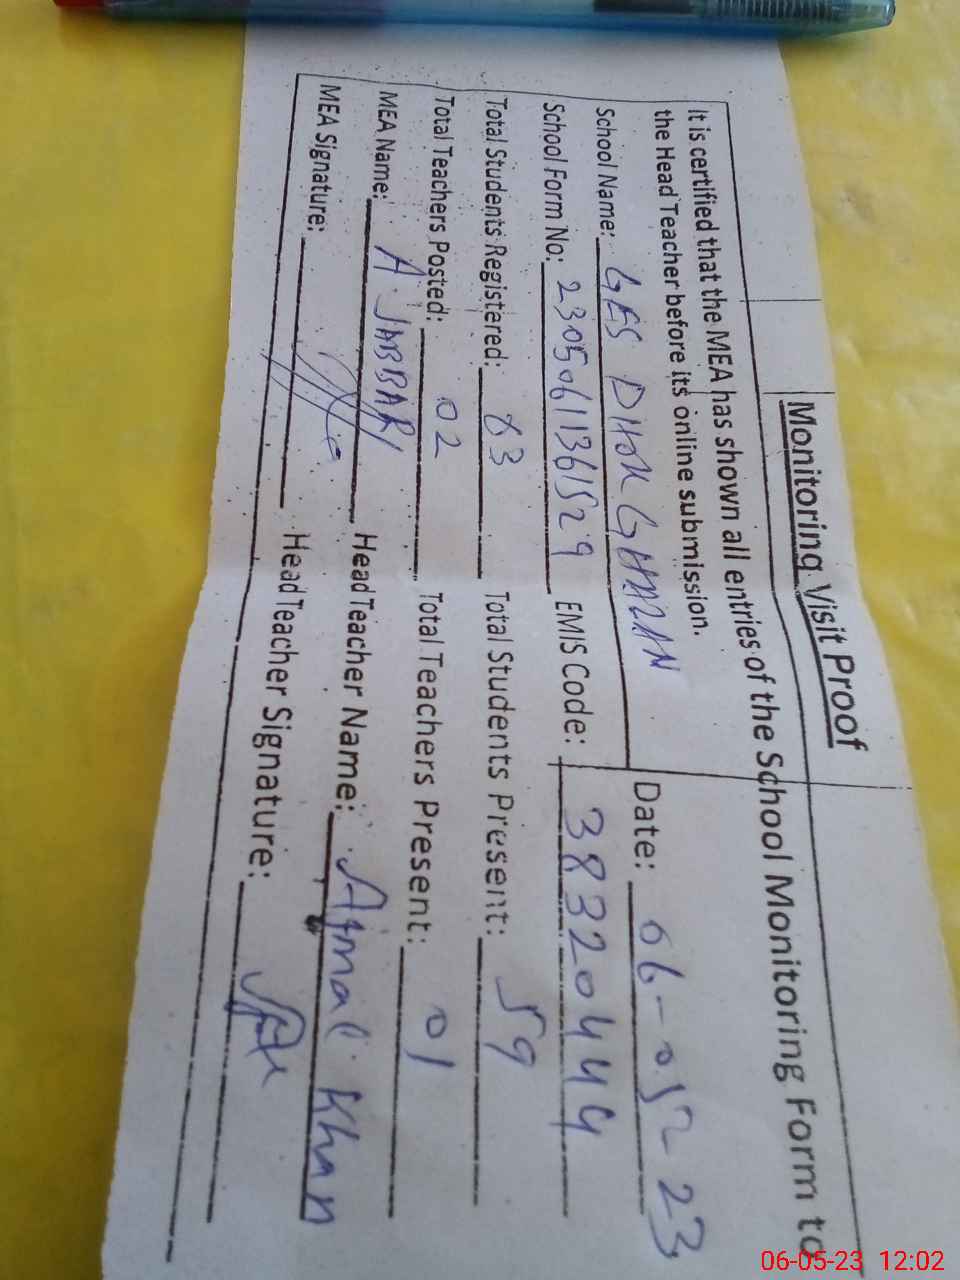 Monitoring Visit Proof
It is certified that the MEA has shown all entries of the School Monitoring Form to
the Head Teacher before its online submission.
School Name: GES DHOK GHAZAN Date: 06-05-23
School Form No: 23050611361529 EMIS Code: 38320444
Total Students Registered: 83 Total Students Present: 59
Total Teachers Posted: 02 Total Teachers Present: 01
MEA Name: A. JABBAR Head Teacher Name: Ajmal Khan
MEA Signature: Head Teacher Signature:
06-05-23 12:02